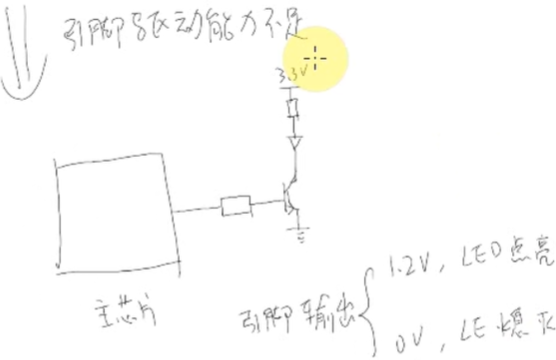 引脚驱动能力不足
3.3V
主芯片
引脚输出
1.2V, LED点亮
0V, LE 熄灭